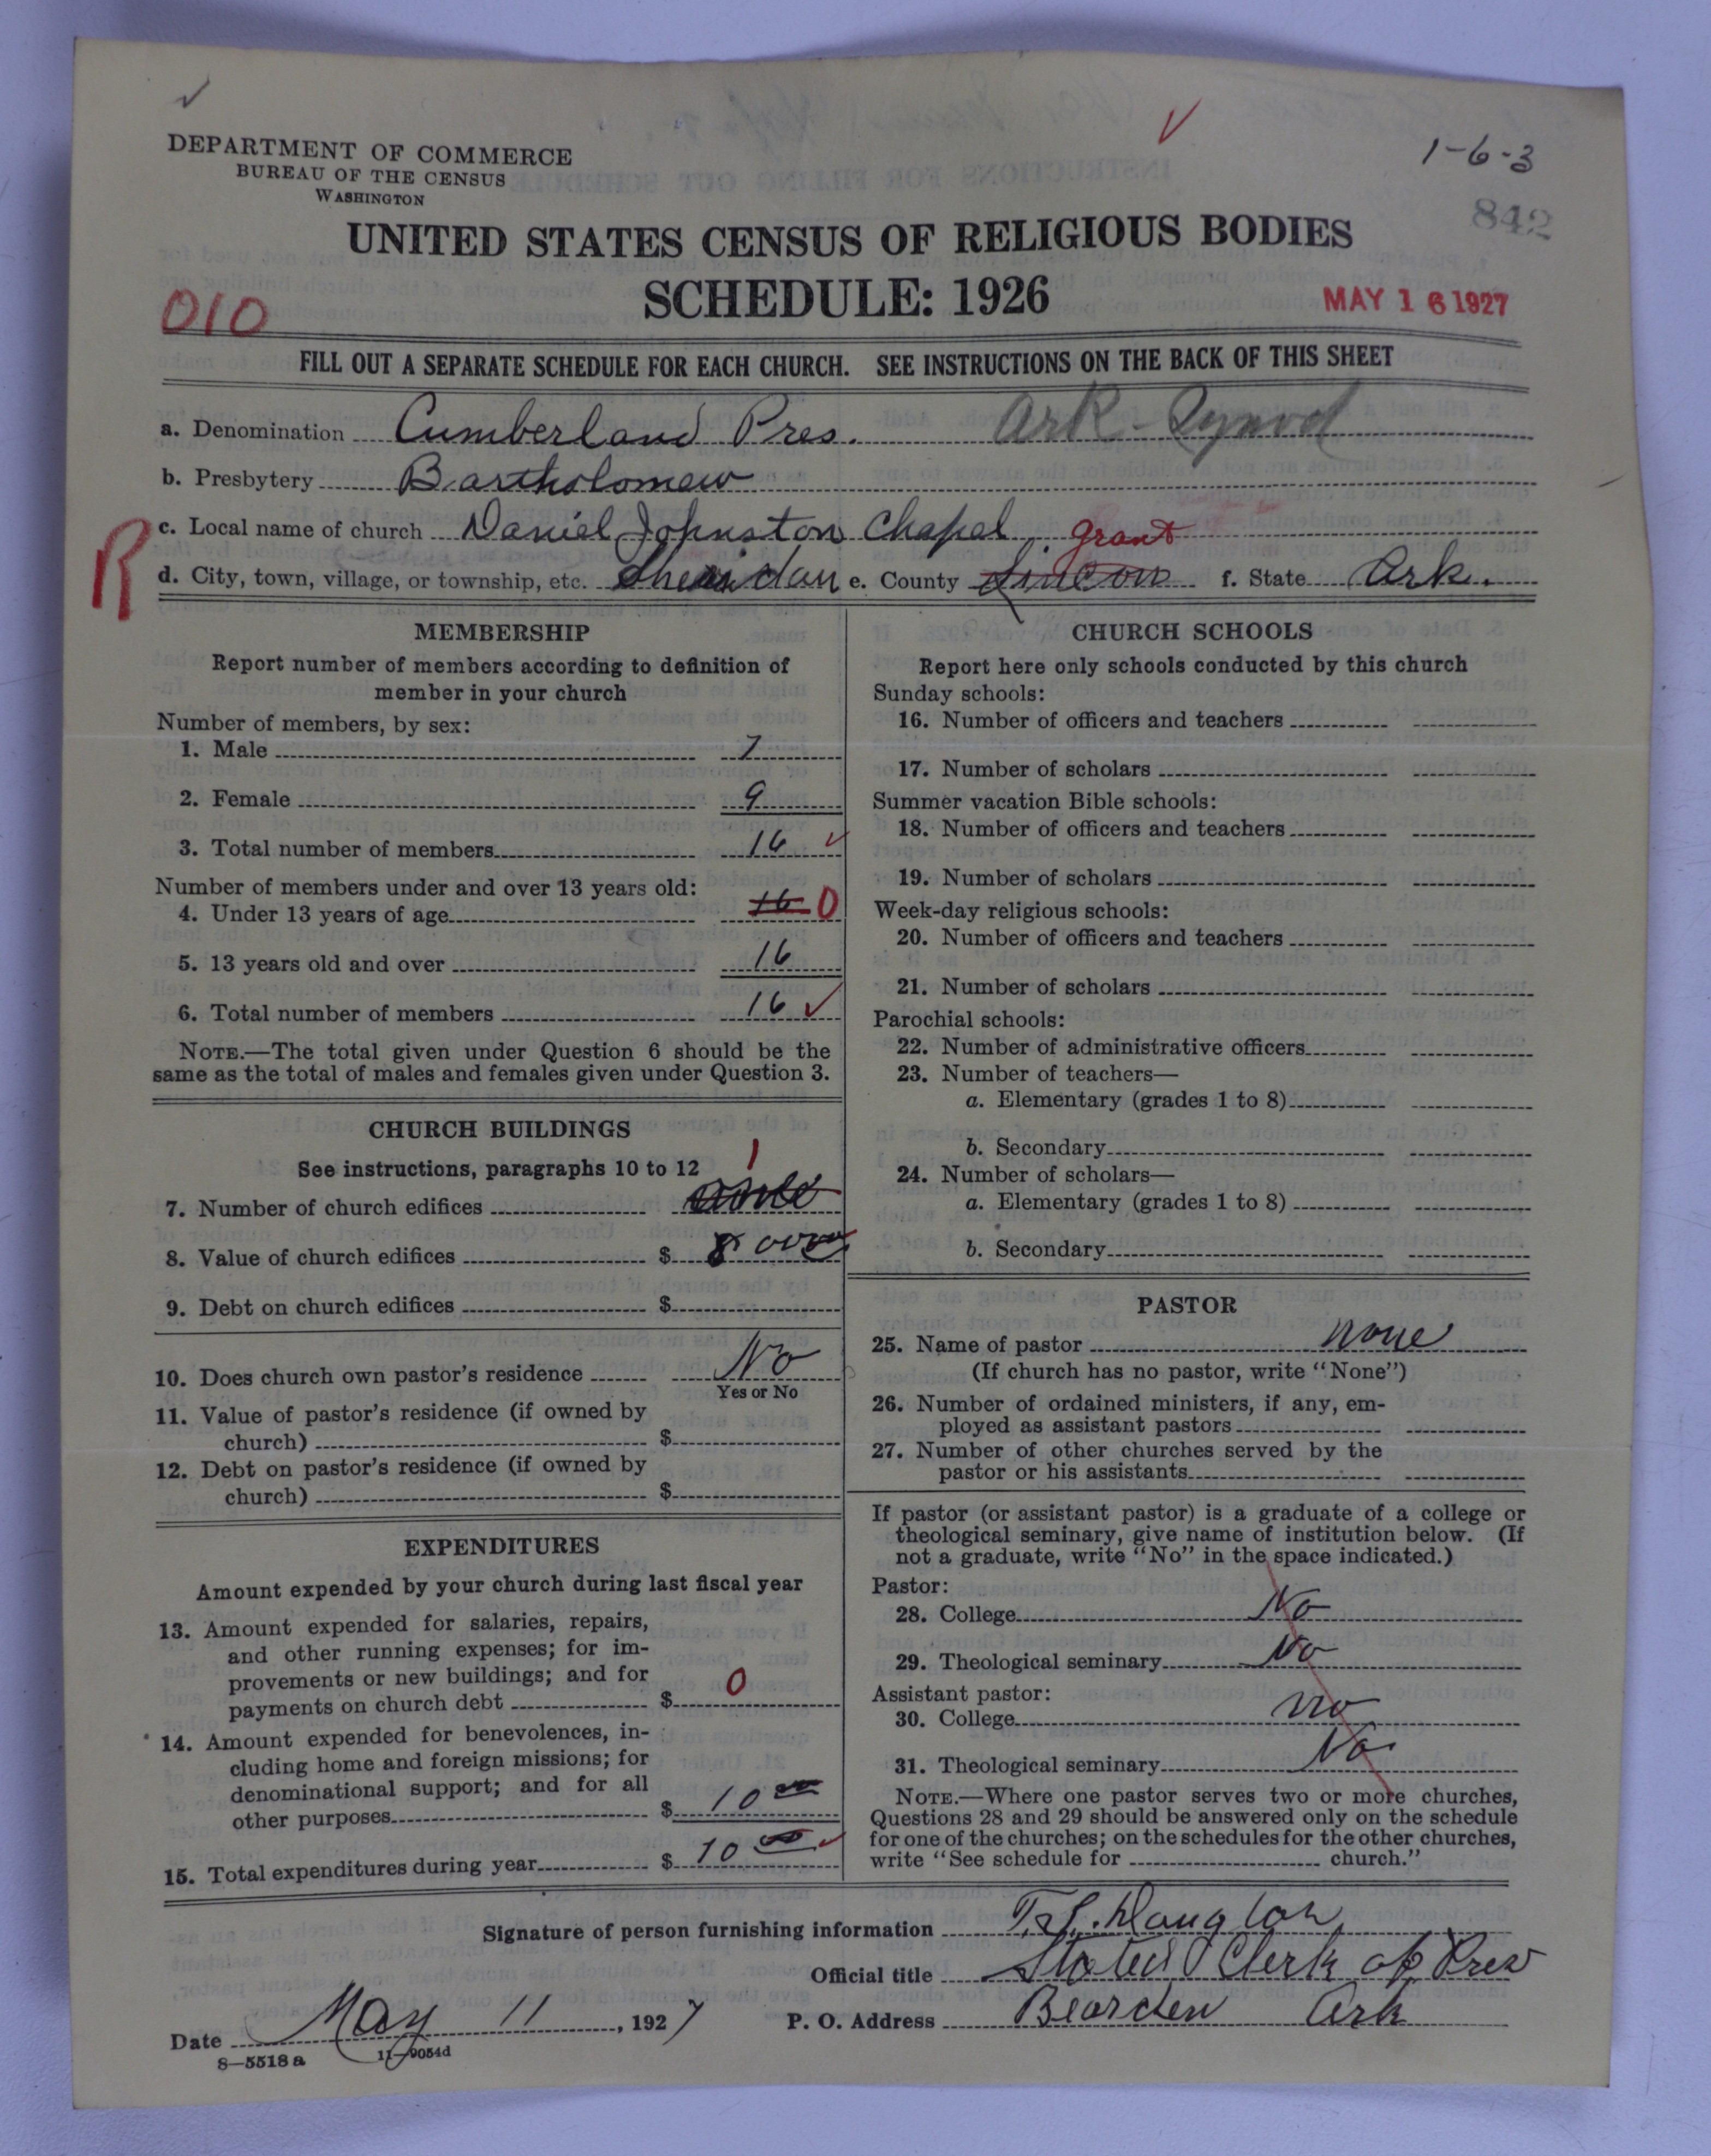 1-6-3
DEPARTMENT OF COMMERCE
BUREAU OF THE CENSUS
WASHINGTON
842
UNITED STATES CENSUS OF RELIGIOUS BODIES
SCHEDULE: 1926
010
MAY 16 1927
FILL OUT A SEPARATE SCHEDULE FOR EACH CHURCH. SEE INSTRUCTIONS ON THE BACK OF THIS SHEET
a. Denomination Cumberland Pres. Ark-Synod
b. Presbytery Bartholomew
R
c. Local name of church Daniel Johnston Chapel
Grant
d. City, town, village, or township, etc. Sheridan e. County Lincoln f. State Ark.
MEMBERSHIP
Report number of members according to definition of
member in your church
Number of members, by sex:
1. Male 7
2. Female 9
3. Total number of members 16
Number of members under and over 13 years old:
4. Under 13 years of age 16 0
5. 13 years old and over 16
6. Total number of members 16
NOTE.—The total given under Question 6 should be the
same as the total of males and females given under Question 3.
CHURCH BUILDINGS
See instructions, paragraphs 10 to 12
1
7. Number of church edifices
8. Value of church edifices $
9. Debt on church edifices $
10. Does church own pastor's residence No
Yes or No
11. Value of pastor's residence (if owned by
church) $
12. Debt on pastor's residence (if owned by
church) $
EXPENDITURES
Amount expended by your church during last fiscal year
13. Amount expended for salaries, repairs,
and other running expenses; for im-
provements or new buildings; and for
payments on church debt $ 0
14. Amount expended for benevolences, in-
cluding home and foreign missions; for
denominational support; and for all
other purposes $ 10 00
15. Total expenditures during year $ 10 00
CHURCH SCHOOLS
Report here only schools conducted by this church
Sunday schools:
16. Number of officers and teachers
17. Number of scholars
Summer vacation Bible schools:
18. Number of officers and teachers
19. Number of scholars
Week-day religious schools:
20. Number of officers and teachers
21. Number of scholars
Parochial schools:
22. Number of administrative officers
23. Number of teachers—
a. Elementary (grades 1 to 8)
b. Secondary
24. Number of scholars—
a. Elementary (grades 1 to 8)
b. Secondary
PASTOR
25. Name of pastor None
(If church has no pastor, write "None")
26. Number of ordained ministers, if any, em-
ployed as assistant pastors
27. Number of other churches served by the
pastor or his assistants
If pastor (or assistant pastor) is a graduate of a college or
theological seminary, give name of institution below. (If
not a graduate, write "No" in the space indicated.)
Pastor:
28. College No
29. Theological seminary No
Assistant pastor:
30. College no
31. Theological seminary No
NOTE.—Where one pastor serves two or more churches,
Questions 28 and 29 should be answered only on the schedule
for one of the churches; on the schedules for the other churches,
write "See schedule for church."
Signature of person furnishing information
Official title Stated Clerk of Pres
Date May 11, 1927 P. O. Address Bearden Ark
8—5518a 11—9054d